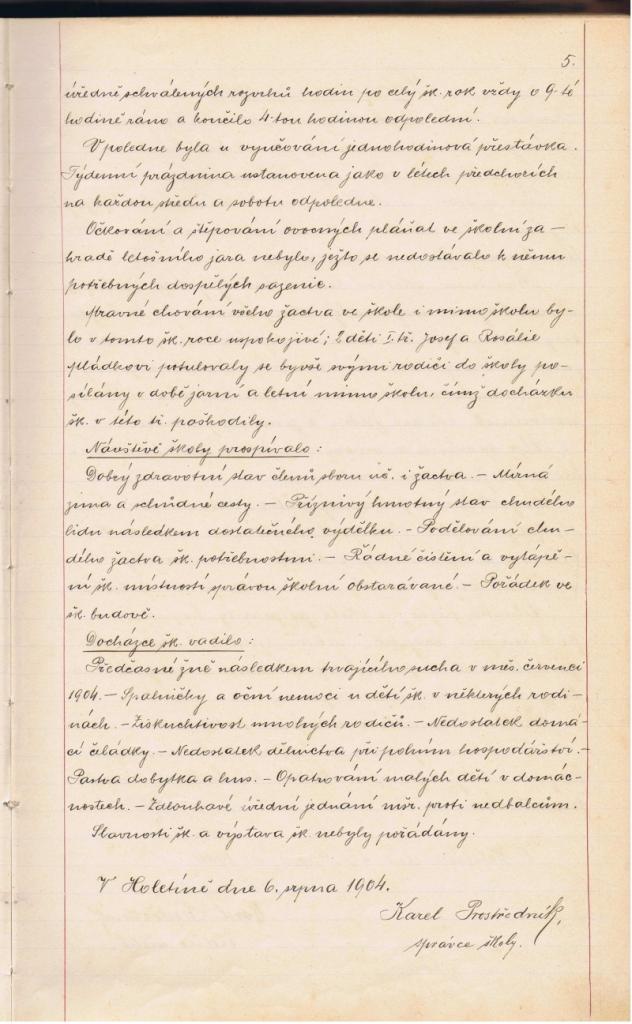 5.
úředně schválených rozvrhů hodin po celý šk. rok vždy o 9-té
hodině ráno a končilo 4-tou hodinou odpolední.
V poledne byla u vyučování jednohodinová přestávka.
Týdenní prázdnina ustanovena jako v létech předchozích
na každou středu a sobotu odpoledne.
Očkování a štěpování ovocných pláňat ve školní za-
hradě letošního jara nebylo, ježto se nedostávalo k němu
potřebných dospělých sazenic.
Mravné chování všeho žactva ve škole i mimo školu by-
lo v tomto šk. roce uspokojivé; 2 děti I. tř. Josef a Rosálie
Mládkovi potulovaly se byvše svými rodiči do školy po-
sílány v době jarní a letní mimo školu, čímž docházku
šk. v této tř. poškodily.
Návštěvě školy prospívalo:
Dobrý zdravotní stav členů sboru uč. i žactva. - Mírná
zima a schůdné cesty. - Příznivý hmotný stav chudého
lidu následkem dostatečného výdělku. - Podělování chu-
dého žactva šk. potřebnostmi. - Řádné čistění a vytápě-
ní šk. místností správou školní obstarávané. - Pořádek ve
šk. budově.
Docházce šk. vadilo:
Předčasné žně následkem trvajícího sucha v měs. červenci
1904. - Spalničky a oční nemoci u dětí šk. v některých rodi-
nách. - Ziskuchtivost mnohých rodičů. - Nedostatek domá-
cí čeládky. - Nedostatek dělnictva při polním hospodářství. -
Pastva dobytka a hus. - Opatrování malých dětí v domác-
nostech. - Zdlouhavé úřední jednání mšr. proti nedbalcům.
Slavnosti šk. a výstava šk. nebyly pořádány.
V Holetíně dne 6. srpna 1904.
Karel Prostředník,
správce školy.